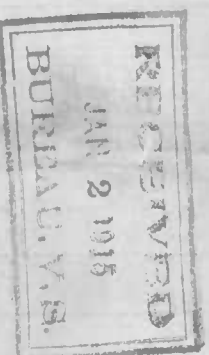 RECEIVED
JAN 2 1915
BUREAU V.S.